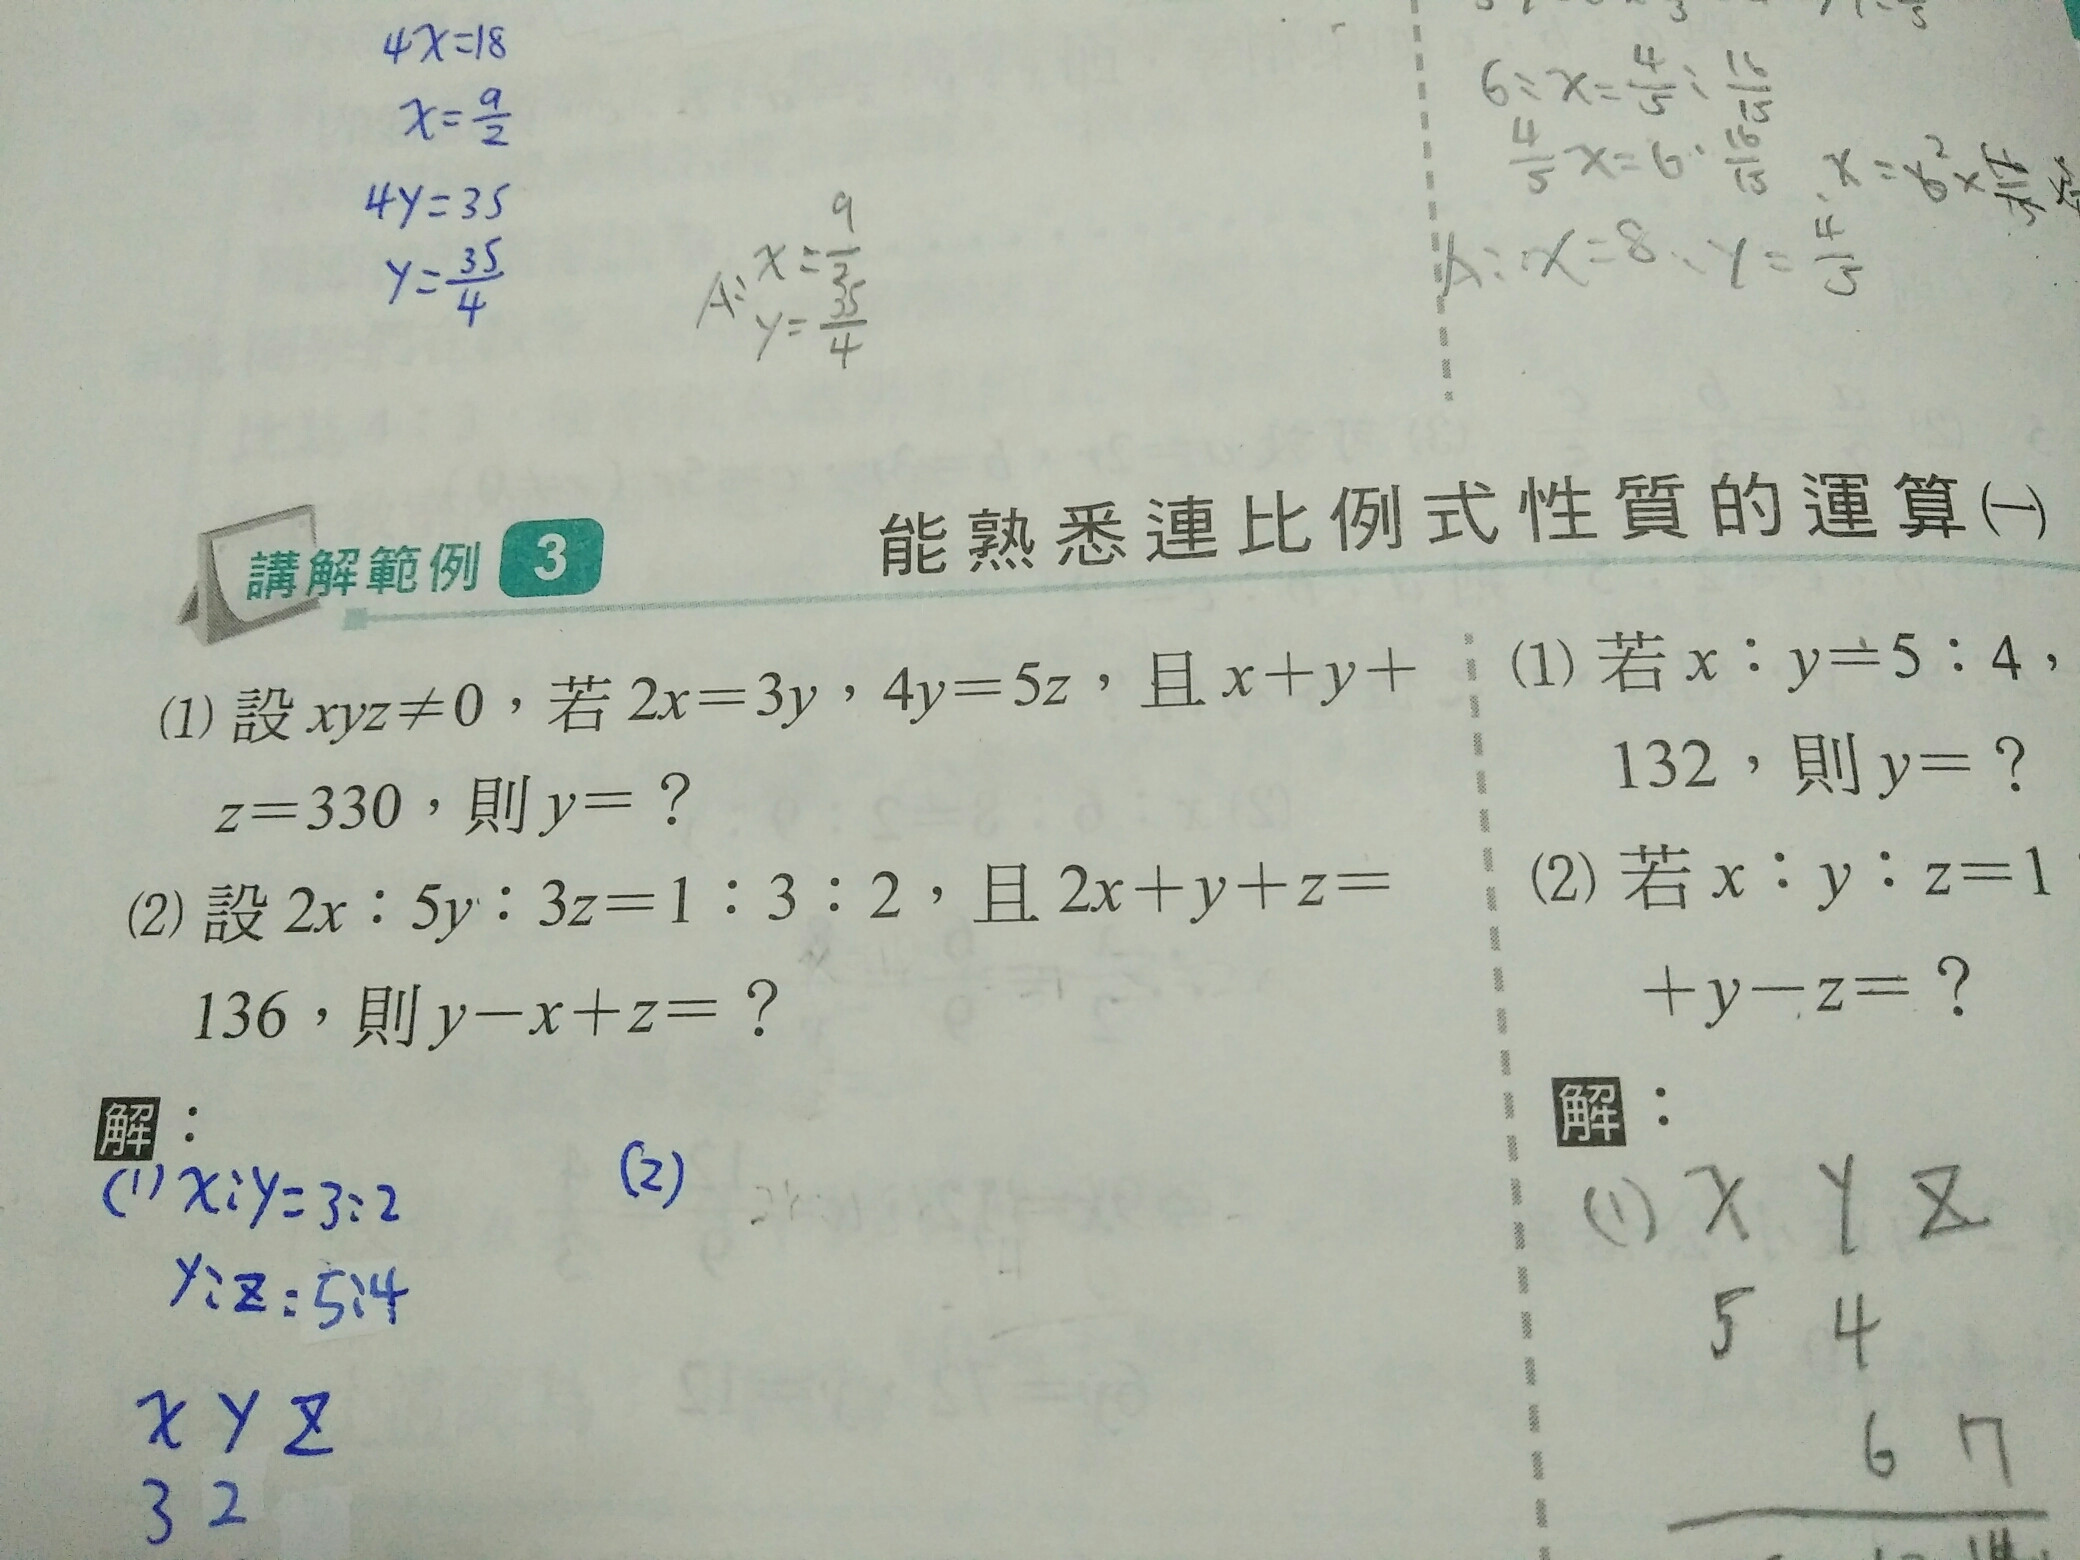 4x=18
x=9/2
4y=35
y=35/4
A: x=9/2
y=35/4
6:x=4/5:16/15
4/5x=6·16/15
A: x=8, y=4/5
講解範例 3
能熟悉連比例式性質的運算(一)
(1) 設 xyz≠0,若 2x=3y,4y=5z,且 x+y+
z=330,則 y=?
(2) 設 2x:5y:3z=1:3:2,且 2x+y+z=
136,則 y-x+z=?
解:
(1) x:y=3:2
y:z=5:4
x y z
3 2
(2)
(1) 若 x:y=5:4,
132,則 y=?
(2) 若 x:y:z=1
+y-z=?
解:
(1) x y z
5 4
6 7